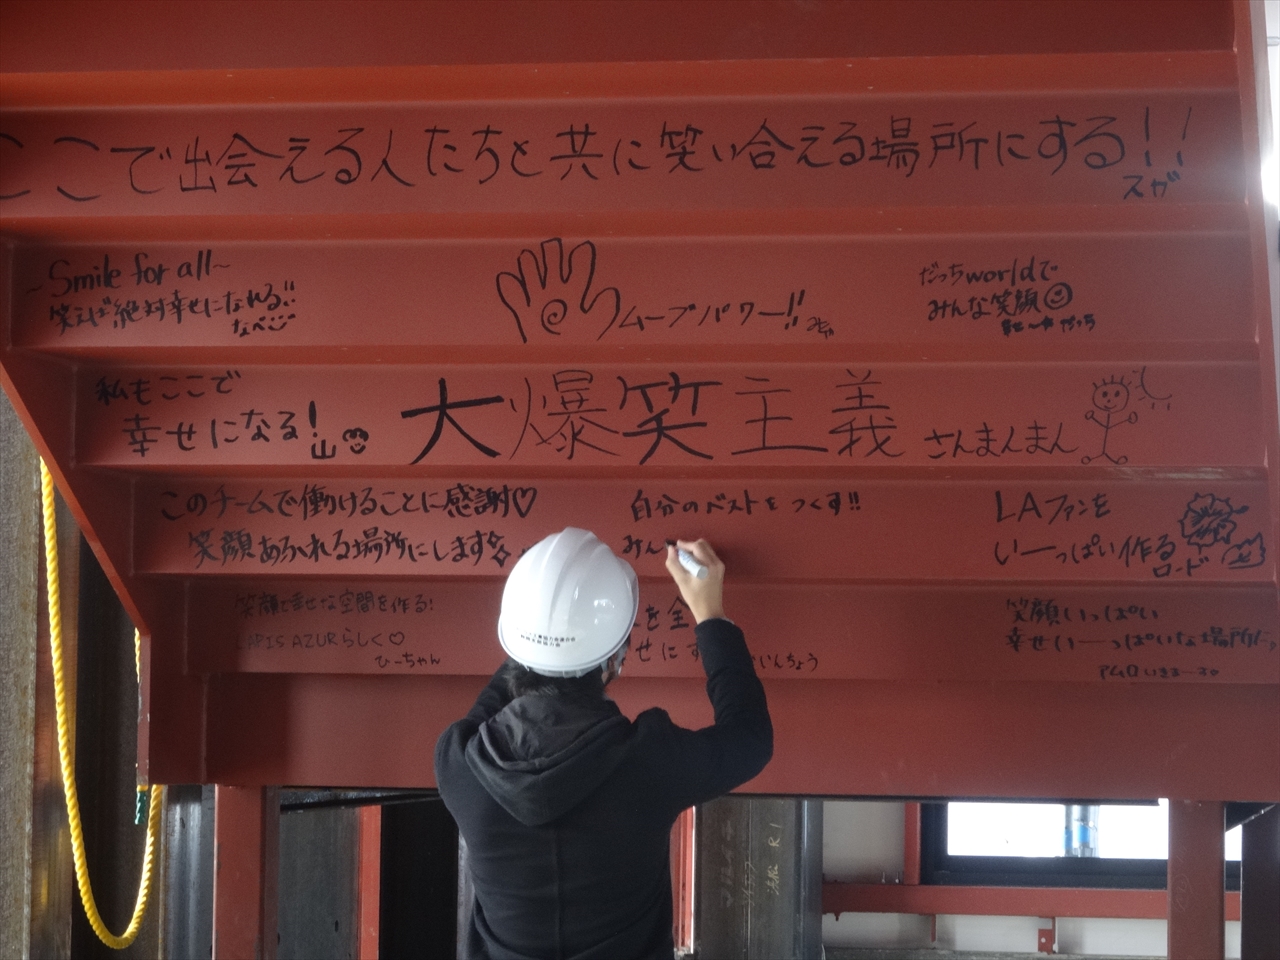 ここで出会える人たちと共に笑い合える場所にする!!
スガ
~Smile for all~
笑えば絶対幸せになれる!!
なべ
ムーブパワー!!
だっちworldで
みんな笑顔
だっち
私もここで
幸せになる!
山
大爆笑主義
さんまんまん
このチームで働けることに感謝♡
笑顔あふれる場所にします
自分のベストをつくす!!
みん
LAファンを
いーっぱい作る
ロード
笑顔と幸せな空間を作る!
LAPIS AZURらしく♡
ひーちゃん
を全
せにす
いんちょう
笑顔いっぱい
幸せいーっぱいな場所に。
R1